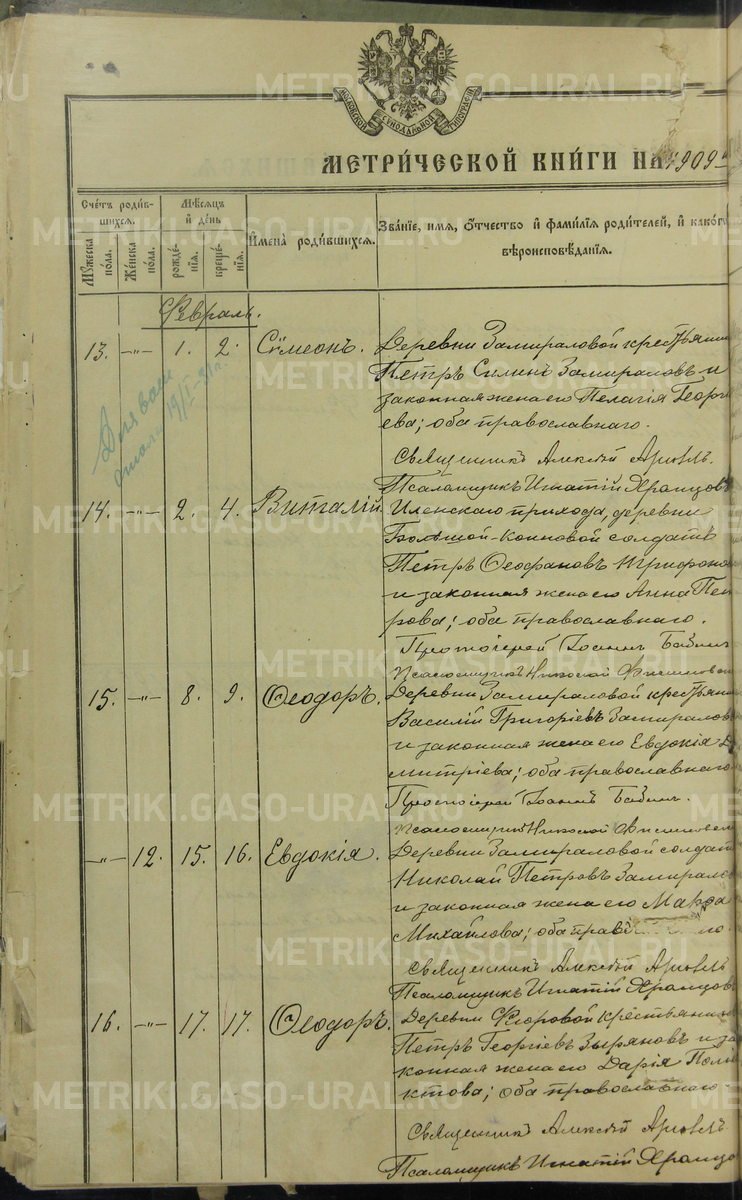 МОСКОВСКОЙ СѴНОДАЛЬНОЙ ТИПОГРАФІИ
МЕТРИ́ЧЕСКОЙ КНИ́ГИ НА 1909
Сче́тъ роди́в-
шихся.
Мꙋ́жеска по́ла.
Же́нска по́ла.
Мѣ́сяцъ
и҆ де́нь
рожде́-
нїя.
креще́-
нїя.
И҆мена̀ роди́вшихся.
Зва́нїе, имя, ѻ҆́тчество и҆ фами́лїя роди́телей, и҆ како́гѡ
вѣроисповѣ́данїя.
Февраль.
13. —„— 1. 2. Сѵмеонъ. Деревни Замираловой крестьянин
Петръ Силинъ Замираловъ и
законная жена его Пелагія Георгі
ева; оба православнаго.
Священникъ Алексѣй
Псаломщикъ Игнатій Храмцовъ
Для
14. —„— 2. 4. Виталій. Иленскаго прихода, деревни
Большой-Конновой солдатъ
Петръ Ѳеофановъ Трифоно
и законная жена его Анна Пет
рова; оба православнаго.
Протоіерей Іоаннъ Бабинъ
Псаломщикъ Николай
15. —„— 8. 9. Ѳеодоръ. Деревни Замираловой крестьянин
Василій Григоріевъ Замиралов
и законная жена его Евдокія Ди
митріева; оба православнаго
Протоіерей Іоаннъ Бабинъ.
Псаломщикъ Николай
—„— 12. 15. 16. Евдокія. Деревни Замираловой солдат
Николай Петровъ Замиралов
и законная жена его Марѳа
Михайлова; оба прав
Священникъ Алексѣй
Псаломщикъ Игнатій Храмцовъ
16. —„— 17. 17. Ѳеодоръ. Деревни Флоровой крестьянин
Петръ Георгіевъ Зыряновъ и за
конная жена его Дарія Поліе
ктова; оба православнаго.
Священникъ Алексѣй
Псаломщикъ Игнатій Храмцо
METRIKI.GASO-URAL.RU